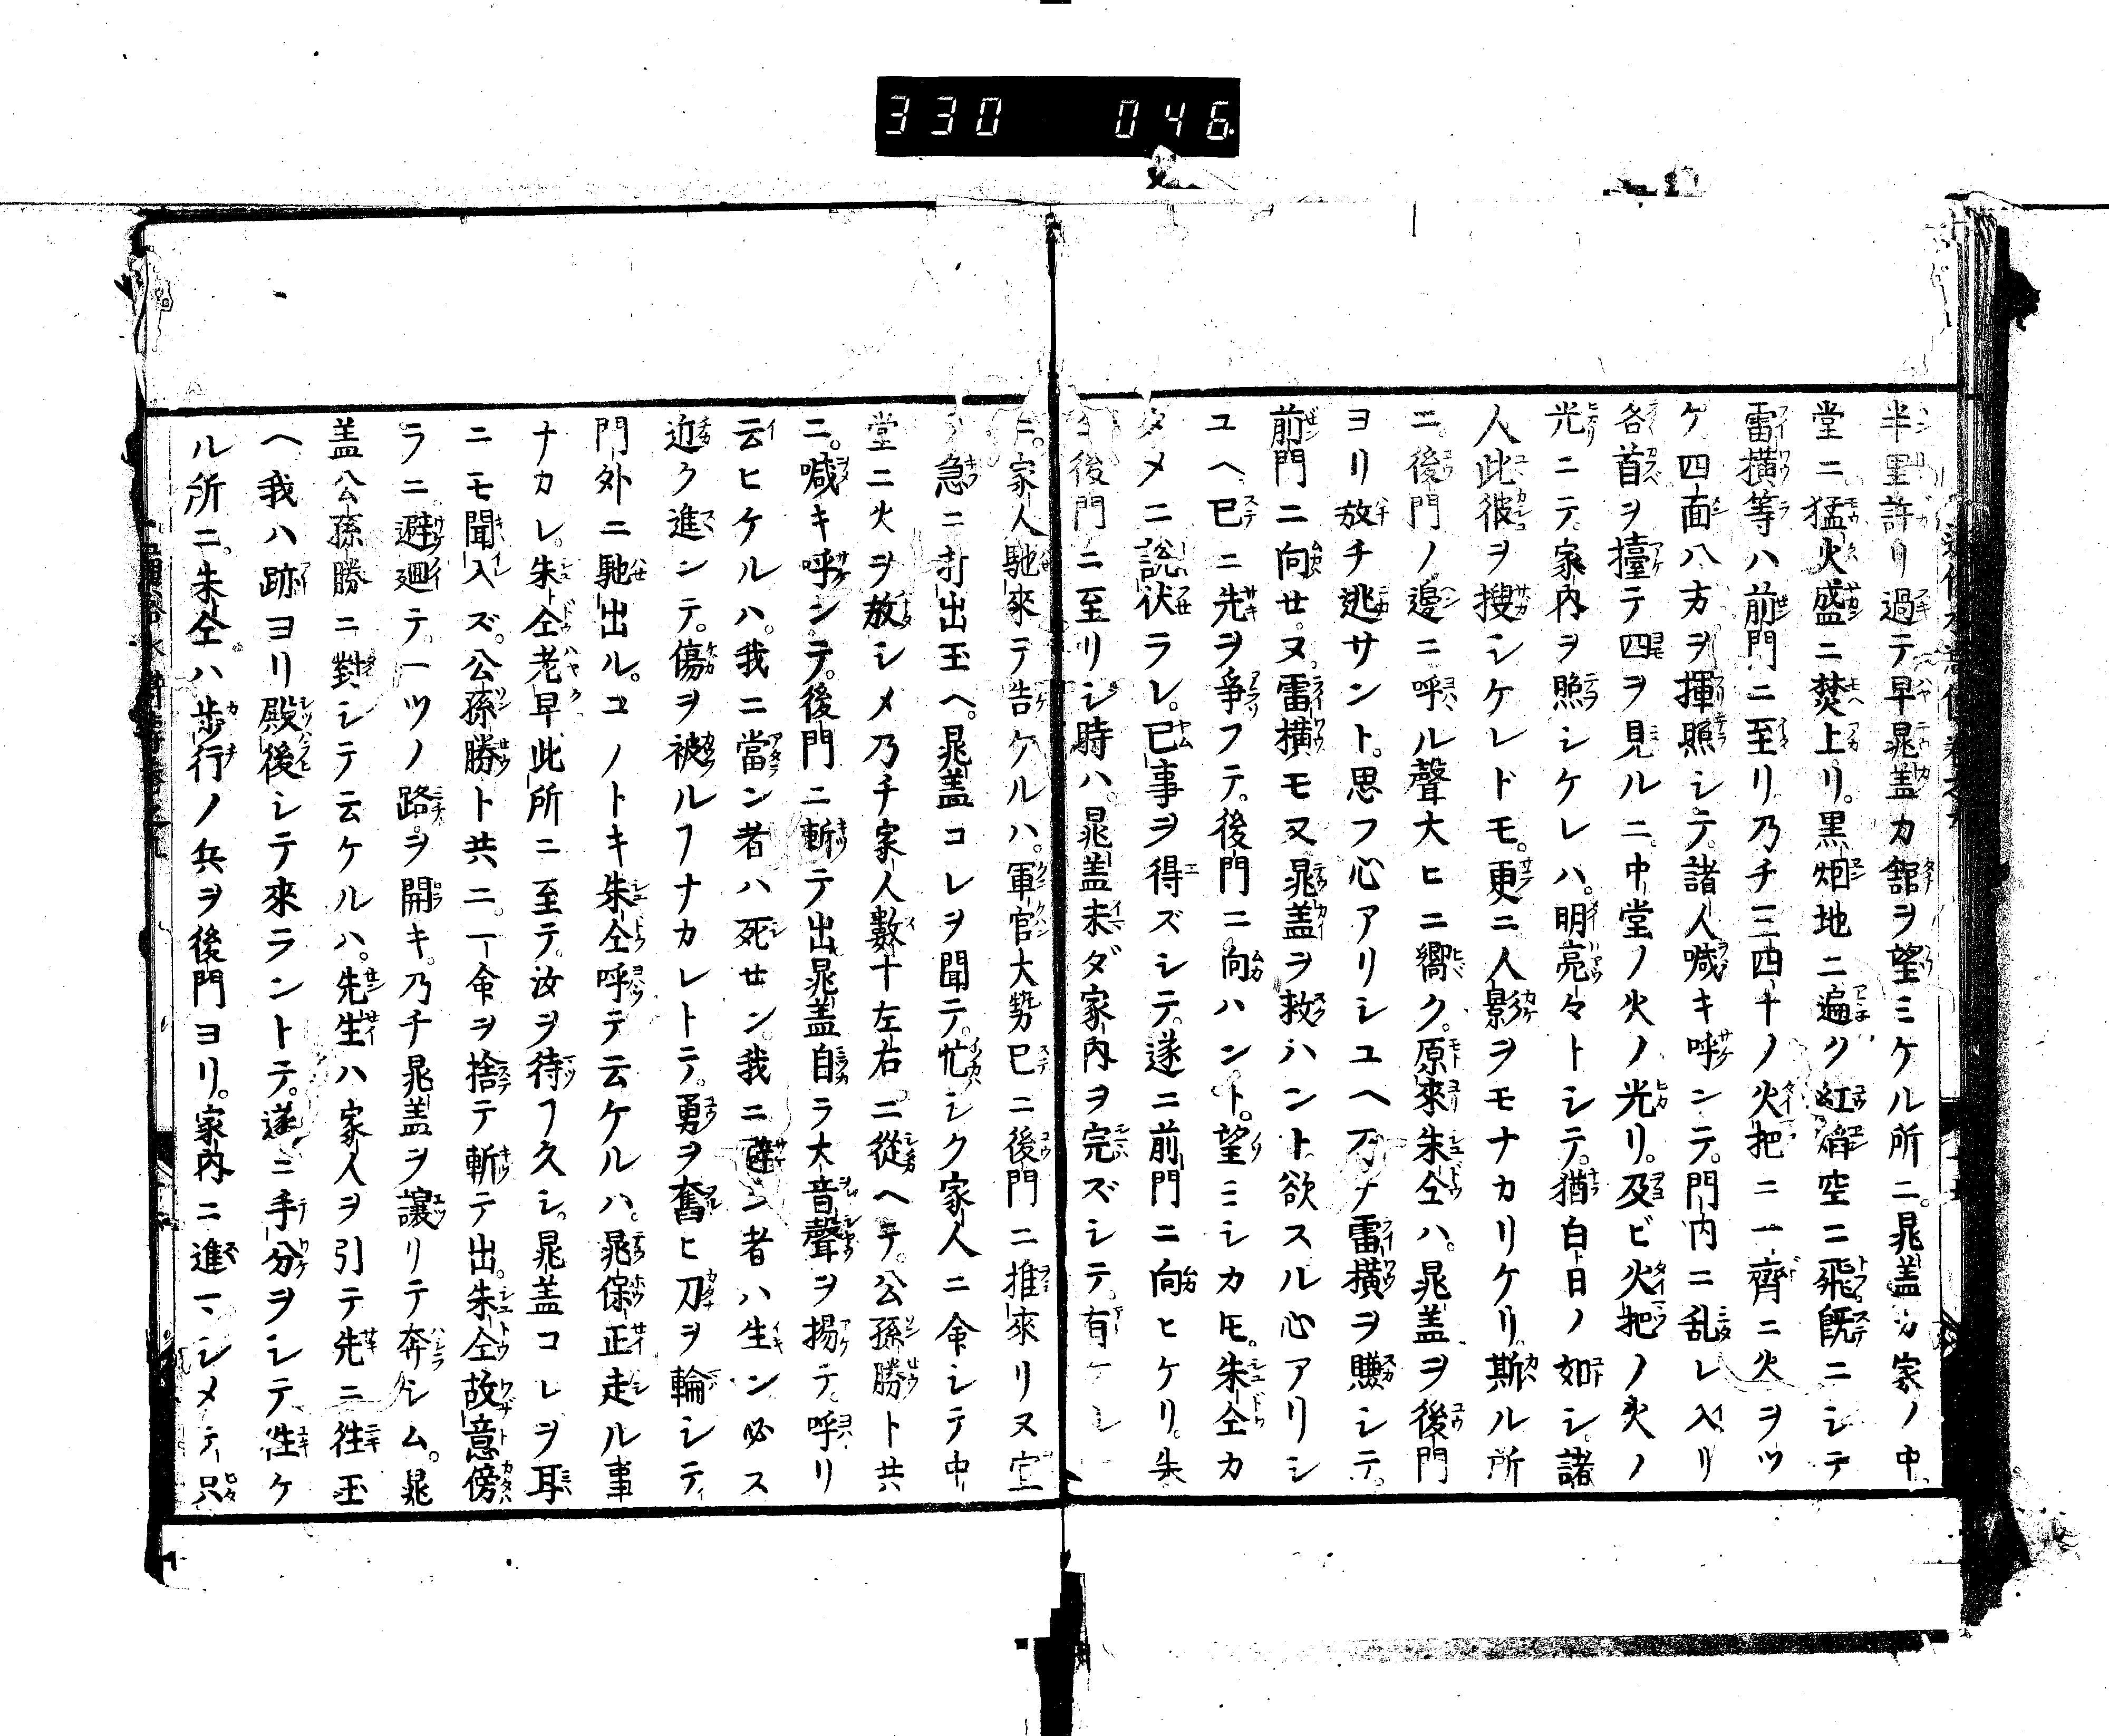 330 046
半里許リ過テ早晁盖カ舘ヲ望ミケル所ニ。晁盖カ家ノ中
堂ニ猛火盛ニ焚上リ。黒烟地ニ遍ク紅焰空ニ飛。既ニシテ
雷横等ハ前門ニ至リ乃チ三四十ノ火把ニ一齊ニ火ヲツ
ケ。四面八方ヲ揮照シテ。諸人喊キ呼ンテ。門内ニ乱レ入リ
各首ヲ擡テ四ヲ見ルニ。中堂ノ火ノ光リ。及ビ火把ノ火ノ
光ニテ。家内ヲ照シケレハ。明亮々トシテ。猶白日ノ如シ。諸
人此彼ヲ搜シケレドモ。更ニ人影ヲモナカリケリ。斯ル所
ニ。後門ノ邉ニ呼ル聲大ヒニ響ク。原來朱仝ハ。晁盖ヲ後門
ヨリ放チ逃サント。思フ心アリシユヘ乃ナ雷横ヲ賺シテ。
前門ニ向セ。ヌ。雷横モ又晁盖ヲ救ハント欲スル心アリシ
ユヘ已ニ先ヲ爭フテ。後門ニ向ハント。望ミシカ𪜈。朱仝カ
タメニ説伏ラレ。已事ヲ得ズシテ。遂ニ前門ニ向ヒケリ。朱
後門ニ至リシ時ハ。晁盖未ダ家内ヲ完ズシテ。有ケシ
ニ。家人馳來テ告ケルハ。軍官大勢已ニ後門ニ推來リヌ
急ニ打出玉ヘ。晁盖コレヲ聞テ。忙シク家人ニ命シテ中
堂ニ火ヲ放シメ乃チ家人數十左右ニ從ヘテ。公孫勝ト共
ニ。喊キ呼ンテ。後門ニ斬テ出晁盖自ラ大音聲ヲ揚テ。呼リ
云ヒケルハ。我ニ當ン者ハ死セン。我ニ避ン者ハ生ン必ス
近ク進ンテ。傷ヲ被ルヿナカレトニテ。勇ヲ奮ヒ刀ヲ輪シテ
門外ニ馳出ル。コノトキ朱仝呼テ云ケルハ。晁保正走ル事
ナカレ。朱仝老早此所ニ至テ。汝ヲ待ヿ久シ。晁盖コレヲ耳
ニモ聞入ズ。公孫勝ト共ニ。一命ヲ捨テ斬テ出。朱仝故意傍
ラニ避廻テ。一ツノ路ヲ開キ。乃チ晁盖ヲ讓リテ奔シム。晁
盖公孫勝ニ對シテ云ケルハ。先生ハ家人ヲ引テ先ニ徃玉
ヘ我ハ跡ヨリ殿後シテ來ラントテ。遂ニ手分ヲシテ徃ケ
ル所ニ。朱仝ハ歩行ノ兵ヲ後門ヨリ。家内ニ進マシメテ只